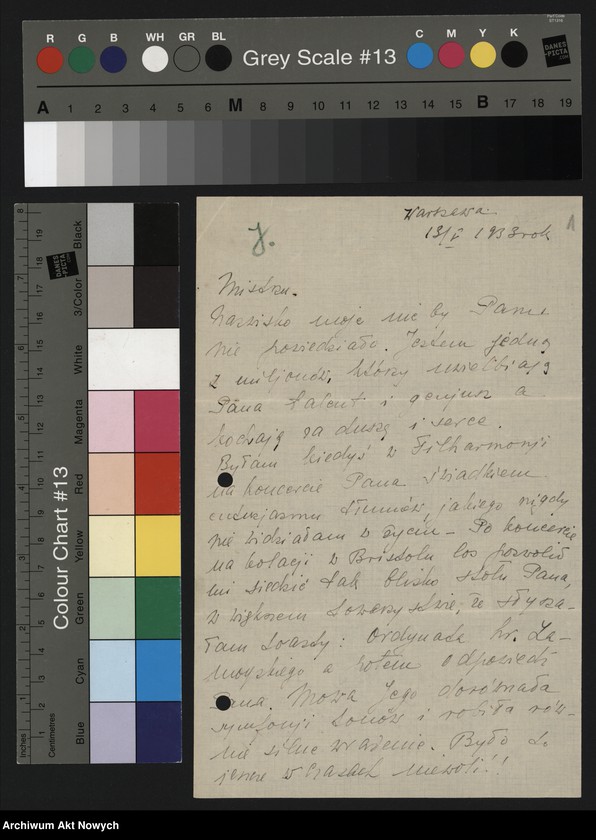 R G B WH GR BL
Grey Scale #13
C M Y K
DANES-PICTA.COM
A 1 2 3 4 5 6 M 8 9 10 11 12 13 14 15 B 17 18 19
Colour Chart #13
Blue Cyan Green Yellow Red Magenta White 3/Color Black
Inches
Centimetres
DANES-PICTA
Warszawa.
13/V 1933 rok
1
J.
Mistrzu.
Nazwisko moje nic by Panu
nie powiedziało. Jestem jedną
z miljonów, który uwielbiają
Pana talent i genjusz a
kochają za duszę i serce.
Byłam kiedyś w Filharmonji
na koncercie Pana świadkiem
entuzjazmu tłumów, jakiego nigdy
nie widziałam w życiu – Po koncercie
na kolacji w Bristolu los pozwolił
mi siedzieć tak blisko stołu Pana,
w większem towarzystwie, że słysza-
łam toasty: Ordynata hr. Za-
moyskiego a potem odpowiedź
Pana. Mowa Jego dorównała
symfonji tonów i robiła rów-
nie silne wrażenie. Było to
jeszcze w czasach niewoli!!
Archiwum Akt Nowych